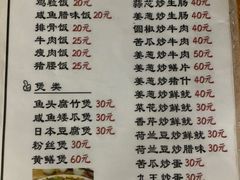 鸡粒饭 20元
咸鱼腊味饭 20元
排骨饭 20元
牛肉饭 25元
瘦肉饭 20元
猪腰饭 25元
煲类
鱼头腐竹煲 30元
咸鱼矮瓜煲 30元
日本豆腐煲 30元
粉丝煲 30元
黄鳝煲 60元
蒜芯炒生肠 40元
姜葱炒生肠 40元
圆椒炒牛肉 40元
苦瓜炒牛肉 40元
姜葱炒牛肉 40元
姜葱炒鳝片 60元
姜葱炒猪什 40元
姜葱炒鲜鱿 40元
菜花炒鲜鱿 30元
香芹炒鲜鱿 30元
荷兰豆炒鲜鱿 30元
荷兰豆炒腊味 30元
苦瓜炒蛋 30元
九王炒蛋 30元